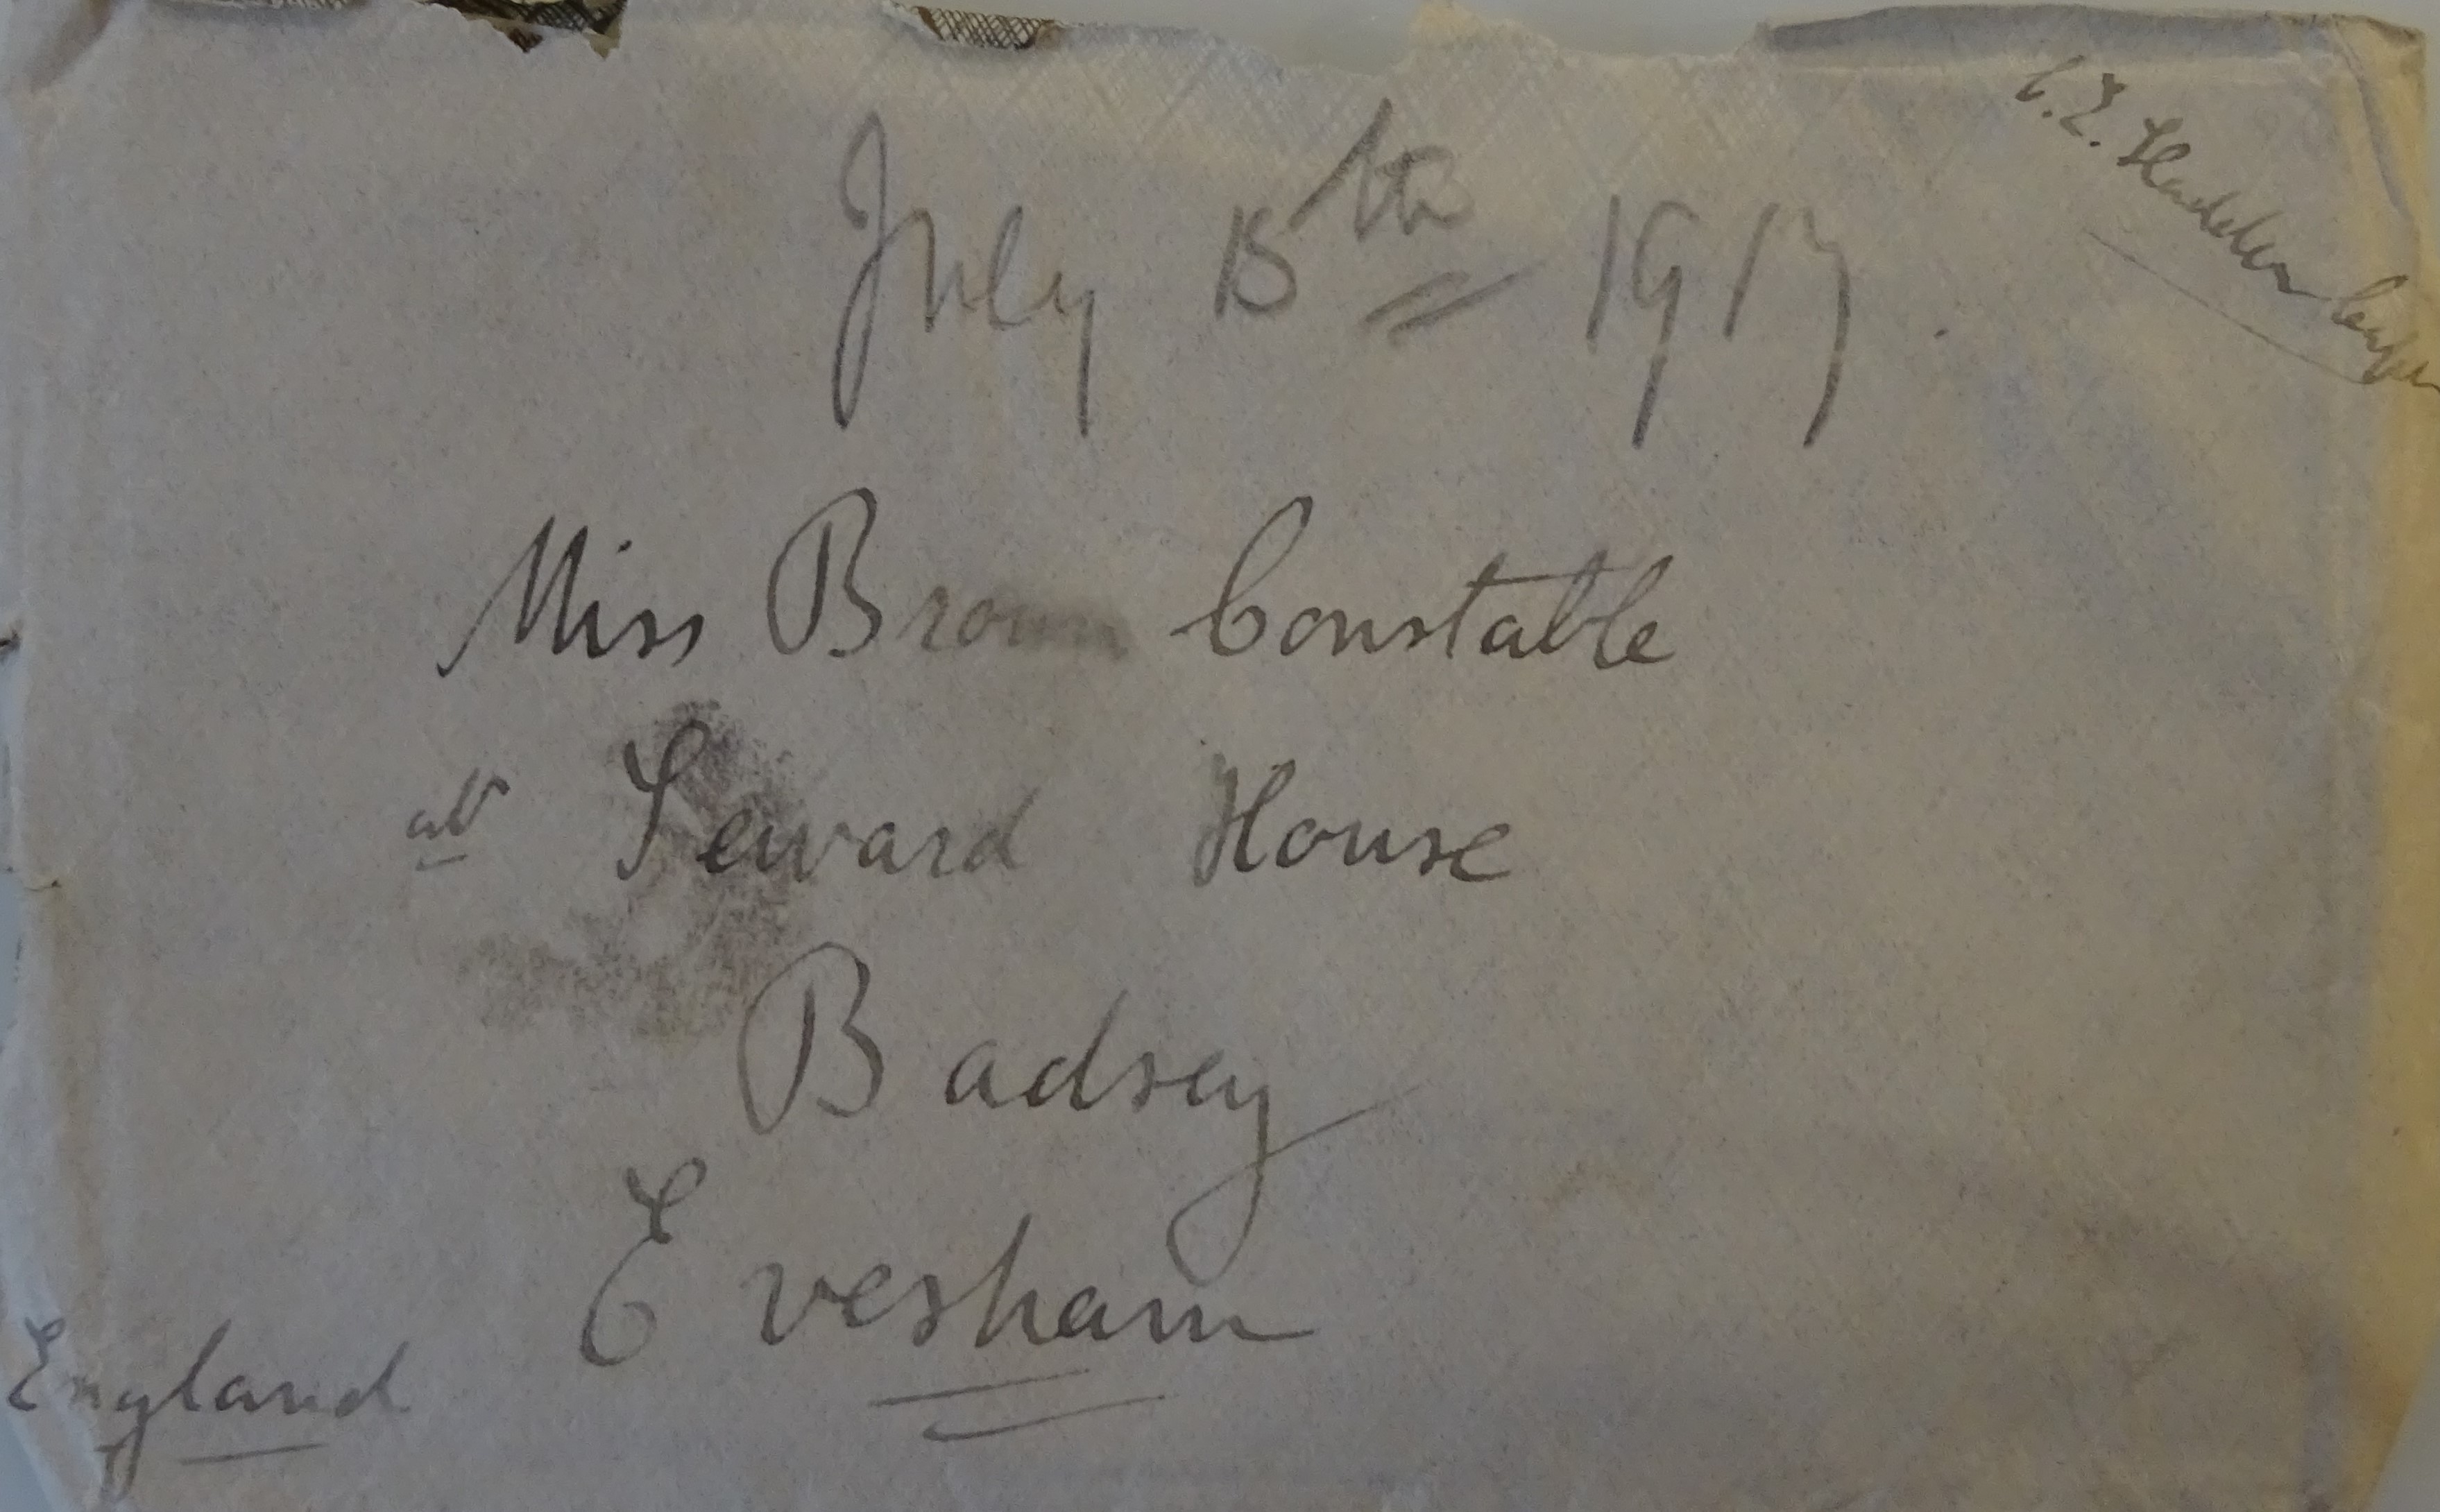 July 15th 1917.
Miss Brown Constable
at Seward House
Badsey
Evesham
England